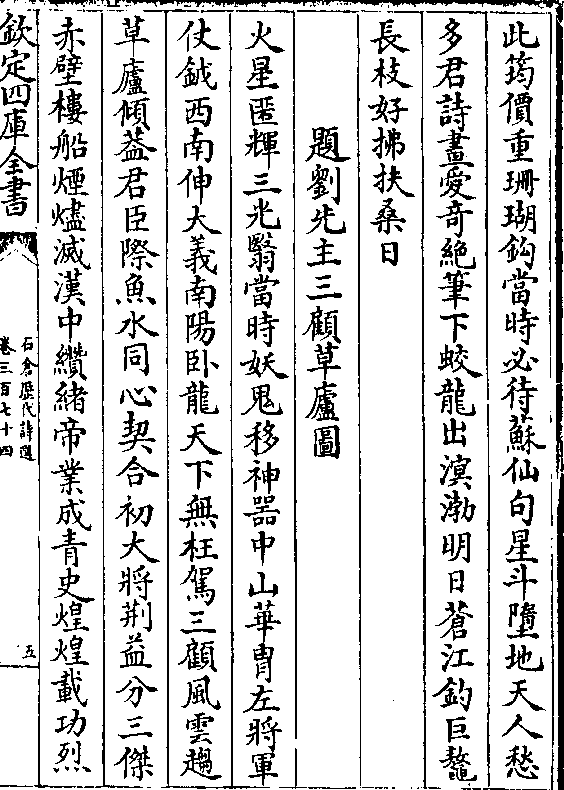 此筠價重珊瑚鈎當時必待蘇仙句星斗墮地天人愁
多君詩畫愛奇絶筆下蛟龍出溟渤明日蒼江釣巨鼇
長枝好拂扶桑日
題劉先主三顧草廬圖
火星匿輝三光翳當時妖鬼移神器中山華胄左將軍
仗鉞西南伸大義南陽卧龍天下無枉駕三顧風雲趨
草廬傾葢君臣際魚水同心契合初大將荆益分三傑
赤壁樓船煙燼滅漢中纘緒帝業成青史煌煌載功烈
欽定四庫全書
石倉歴代詩選
卷三百七十四
五